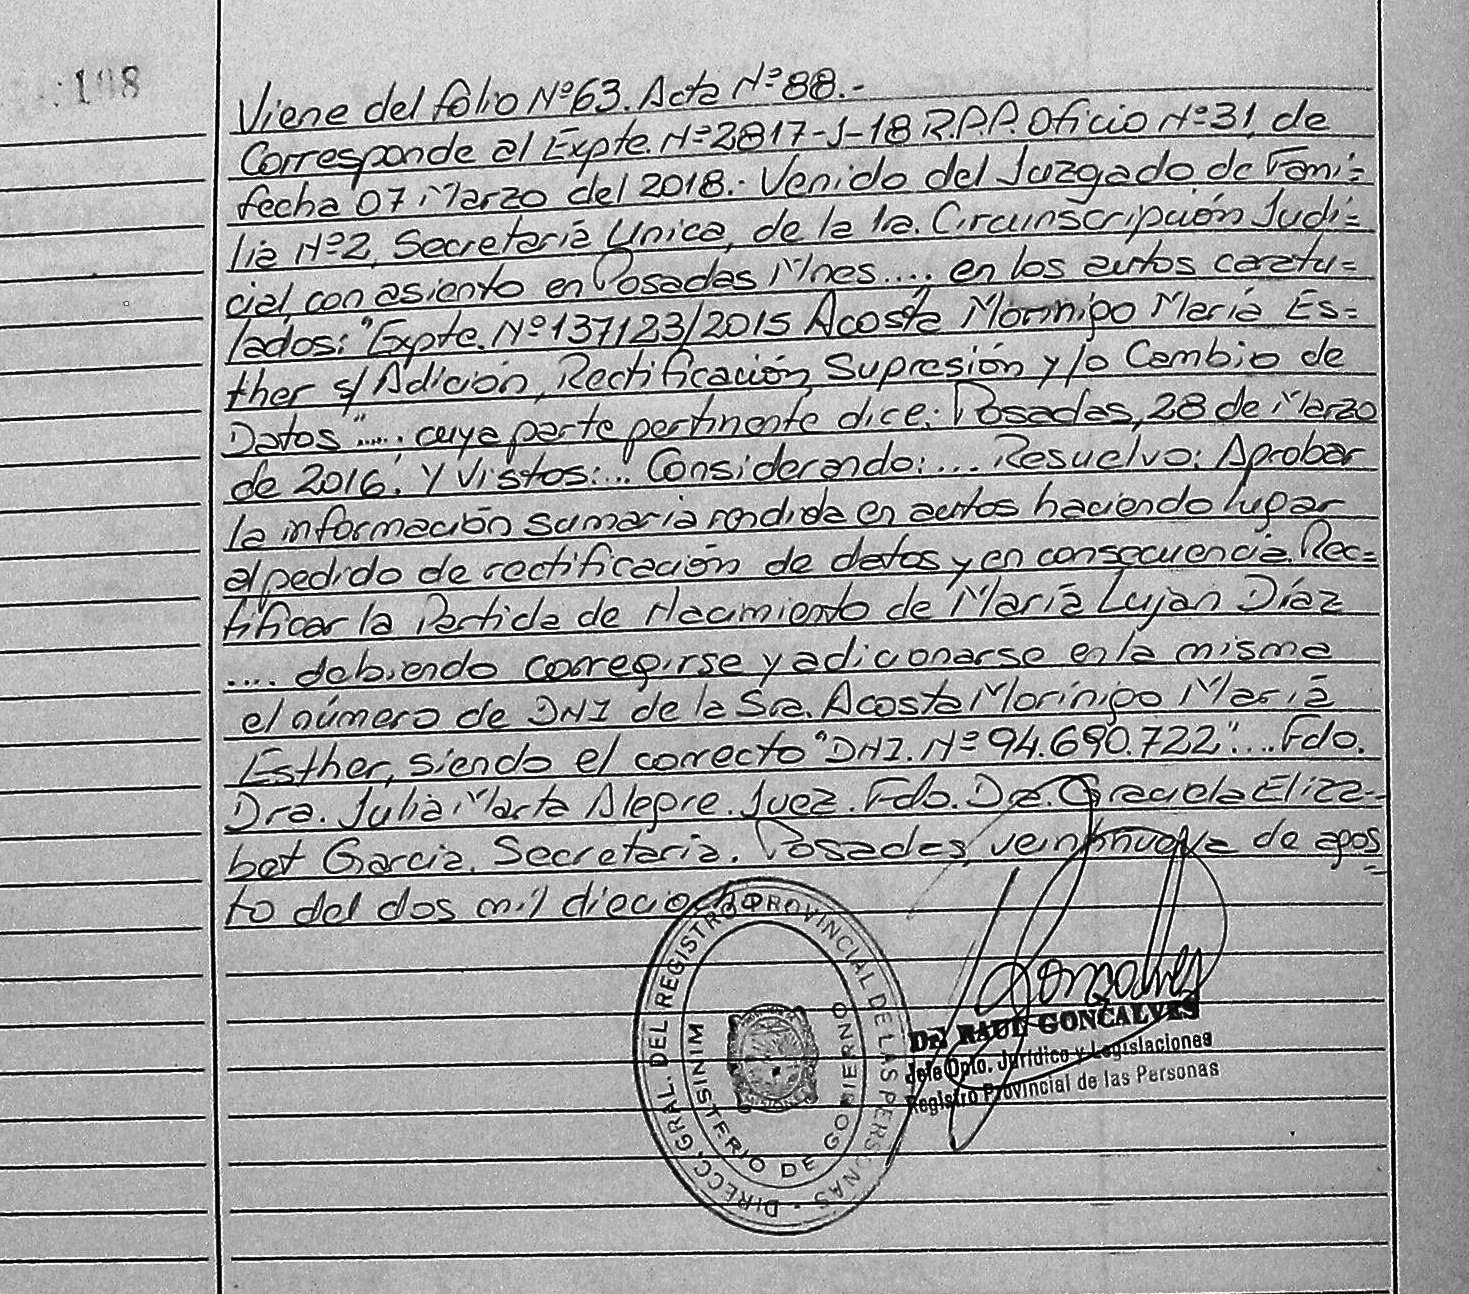 198
Viene del folio Nº63. Acta Nº88.-
Corresponde al Expte. Nº2817-J-18 R.P.P. Oficio Nº31, de
fecha 07 Marzo del 2018.- Venido del Juzgado de Fami=
lia Nº2, Secretaría Unica, de la 1ra. Circunscripción Judi=
cial, con asiento en Posadas Mnes.... en los autos caratu=
lados: "Expte. Nº137123/2015 Acosta Morinigo María Es=
ther s/ Adición, Rectificación, Supresión y/o Cambio de
Datos"..... cuya parte pertinente dice: Posadas, 28 de Marzo
de 2016. Y Vistos:... Considerando:.... Resuelvo: Aprobar
la información sumaria rendida en autos haciendo lugar
al pedido de rectificación de datos y en consecuencia Rec=
tificar la Partida de Nacimiento de María Lujan Díaz
.... debiendo corregirse y adicionarse en la misma
el número de DNI de la Sra. Acosta Morínigo María
Esther, siendo el correcto "DNI. Nº 94.690.722".... Fdo.
Dra. Julia Marta Alegre. Juez. Fdo. Dra. Graciela Eliza-
bet Garcia. Secretaria. Posadas, veintinueve de agos
to del dos mil dieciocho
DIRECC. GRAL. DEL REGISTRO PROVINCIAL DE LAS PERSONAS
MINISTERIO DE GOBIERNO
Gonçalves
Dr. RAUL GONCALVES
Jefe Dpto. Jurídico y Legislaciones
Registro Provincial de las Personas